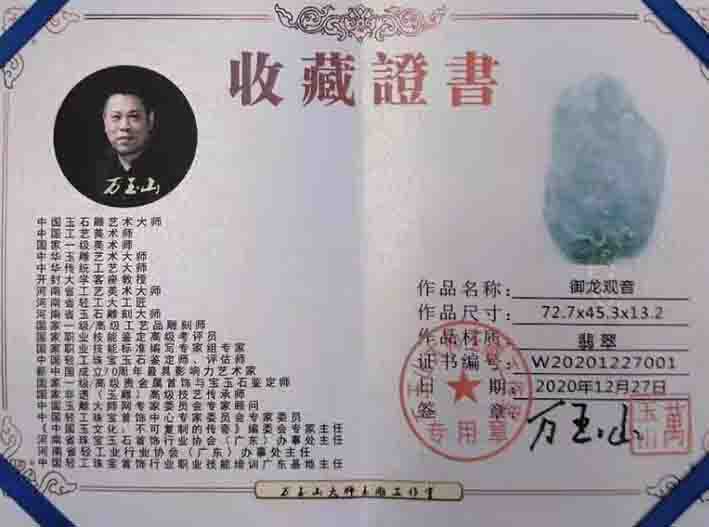 收藏證書
万玉山
中国玉石雕艺术大师
中国工艺美术师
国家一级美术师
中华玉雕艺术大师
中华传统工艺大师
开封大学客座教授
河南省工艺美术大师
河南省轻工大工匠
河南省玉石雕刻大师
国家一级/高级工艺品雕刻师
国家职业技能鉴定高级考评员
国家职业技能标准编写专家组专家
中国轻工珠宝玉石鉴定师、评估师
新中国成立70周年最具影响力艺术家
国家一级/高级贵金属首饰与宝玉石鉴定师
国家非遗（玉雕）高级技艺传承师
中国玉雕大师网专家委员会专家顾问
中国轻工珠宝首饰中心专家委员会专家委员
《中国玉文化：不可复制的传奇》编委会专家主任
河南省珠宝玉石首饰行业协会（广东）办事处主任
河南省轻工业行业协会（广东）办事处主任
中国轻工珠宝首饰行业职业技能培训广东基地主任
作品名称：御龙观音
作品尺寸：72.7x45.3x13.2
作品材质：翡翠
证书编号：W20201227001
日期：2020年12月27日
签章：万玉山
专用章
万玉山
万玉山大师玉雕工作室